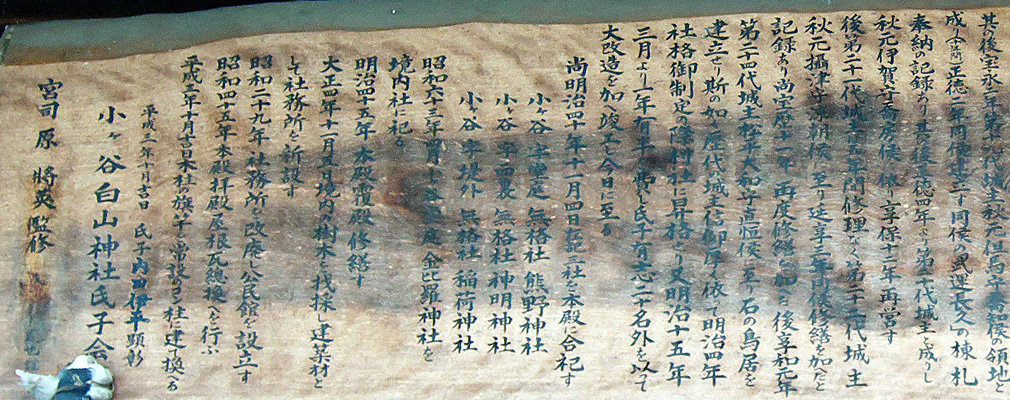 其の後宝永二年第十八代城主秋元但馬守喬知侯の領地と
成り正徳二年同侯建立す同侯の武運長久の棟札
奉納の記録あり其後正徳四年より第十九代城主と成りし
秋元伊賀守喬房侯に依り享保十二年再営す
後第二十一代城主 年間修理なく第二十二代城主
秋元摂津守凉朝侯に至り延享二年同侯修繕を加へたと
記録あり尚宝暦十一年再度修繕を加え後享和元年
第二四代城主松平大和守直恒侯に至り石の鳥居を
建立せり斯の如く歴代城主信仰厚く依て明治四年
社格御制定の際神社に昇格せり又明治十五年
三月より一年有半を費し氏子有志二十名外を以って
大改造を加へ竣工し今日に至る
尚明治四十年十一月四日 三社を本殿に合祀す
小ヶ谷字 無格社熊野神社
小ヶ谷字 無格社神明神社
小ヶ谷字堤外無格社稲荷神社
昭和六十三年 金比羅神社を
境内社に祀る
明治四十五年本殿覆殿修繕す
大正四年十一月 境内の樹木を伐採し建築材と
して社務所を新設す
昭和二十九年社務所を改廃し公民館を設立す
昭和四十五年本殿拝殿屋根瓦總換へを行ふ
平成三年十月吉日本社旗竿を常設のコン柱に建て換へる
平成三年十月吉日 氏子内田伊平顕彰
小ヶ谷白山神社氏子会
宮司原 将英 監修